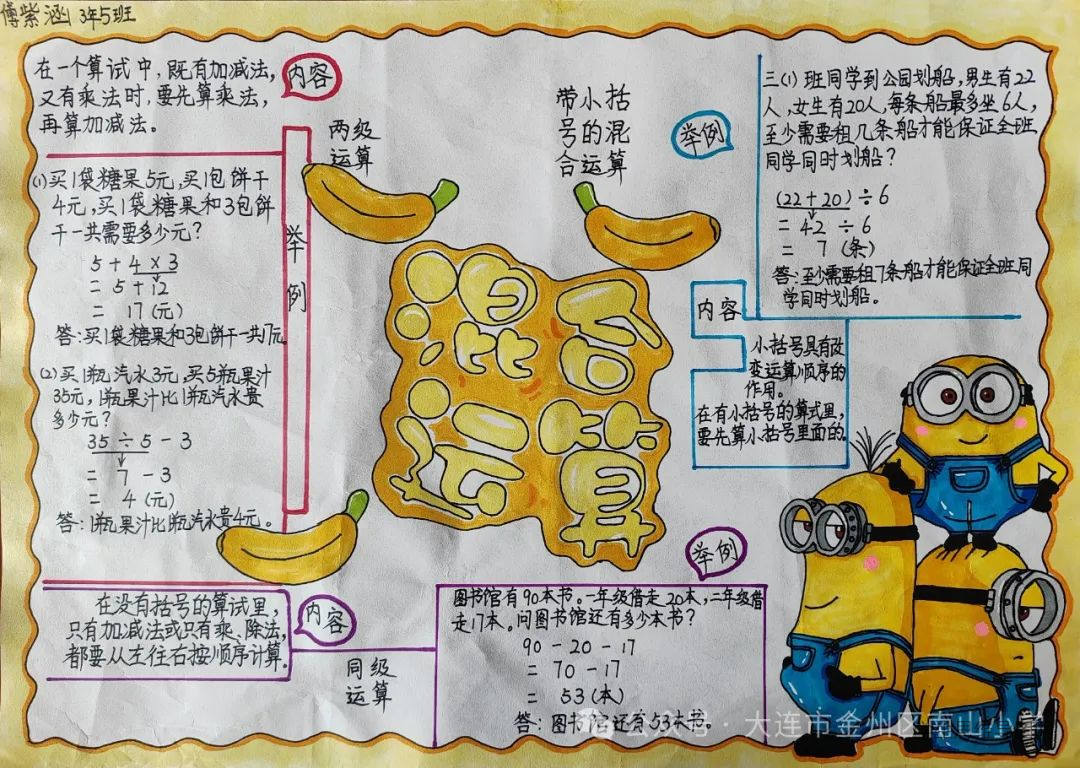 傅紫涵 3年5班
在一个算试中，既有加减法，
又有乘法时，要先算乘法，
再算加减法。
内容
两级
运算
举
例
(1)买1袋糖果5元，买1包饼干
4元，买1袋糖果和3包饼
干一共需要多少元？
5+4×3
=5+12
= 17(元)
答：买1袋糖果和3包饼干一共17元。
(2)买1瓶汽水3元，买5瓶果汁
35元，1瓶果汁比1瓶汽水贵
多少元？
35÷5-3
= 7-3
= 4(元)
答：1瓶果汁比1瓶汽水贵4元。
混合
运算
带小括
号的混
合运算
举例
三(1)班同学到公园划船，男生有22
人，女生有20人，每条船最多坐6人，
至少需要租几条船才能保证全班
同学同时划船？
(22+20)÷6
= 42 ÷6
= 7 (条)
答：至少需要租7条船才能保证全班同
学同时划船。
内容
小括号具有改
变运算顺序的
作用。
在有小括号的算式里，
要先算小括号里面的。
在没有括号的算试里，
只有加减法或只有乘、除法，
都要从左往右按顺序计算。
内容
同级
运算
举例
图书馆有90本书。一年级借走20本，二年级借
走17本。问图书馆还有多少本书？
90-20-17
= 70-17
= 53(本)
答：图书馆还有53本书。
公众号·大连市金州区南山小学